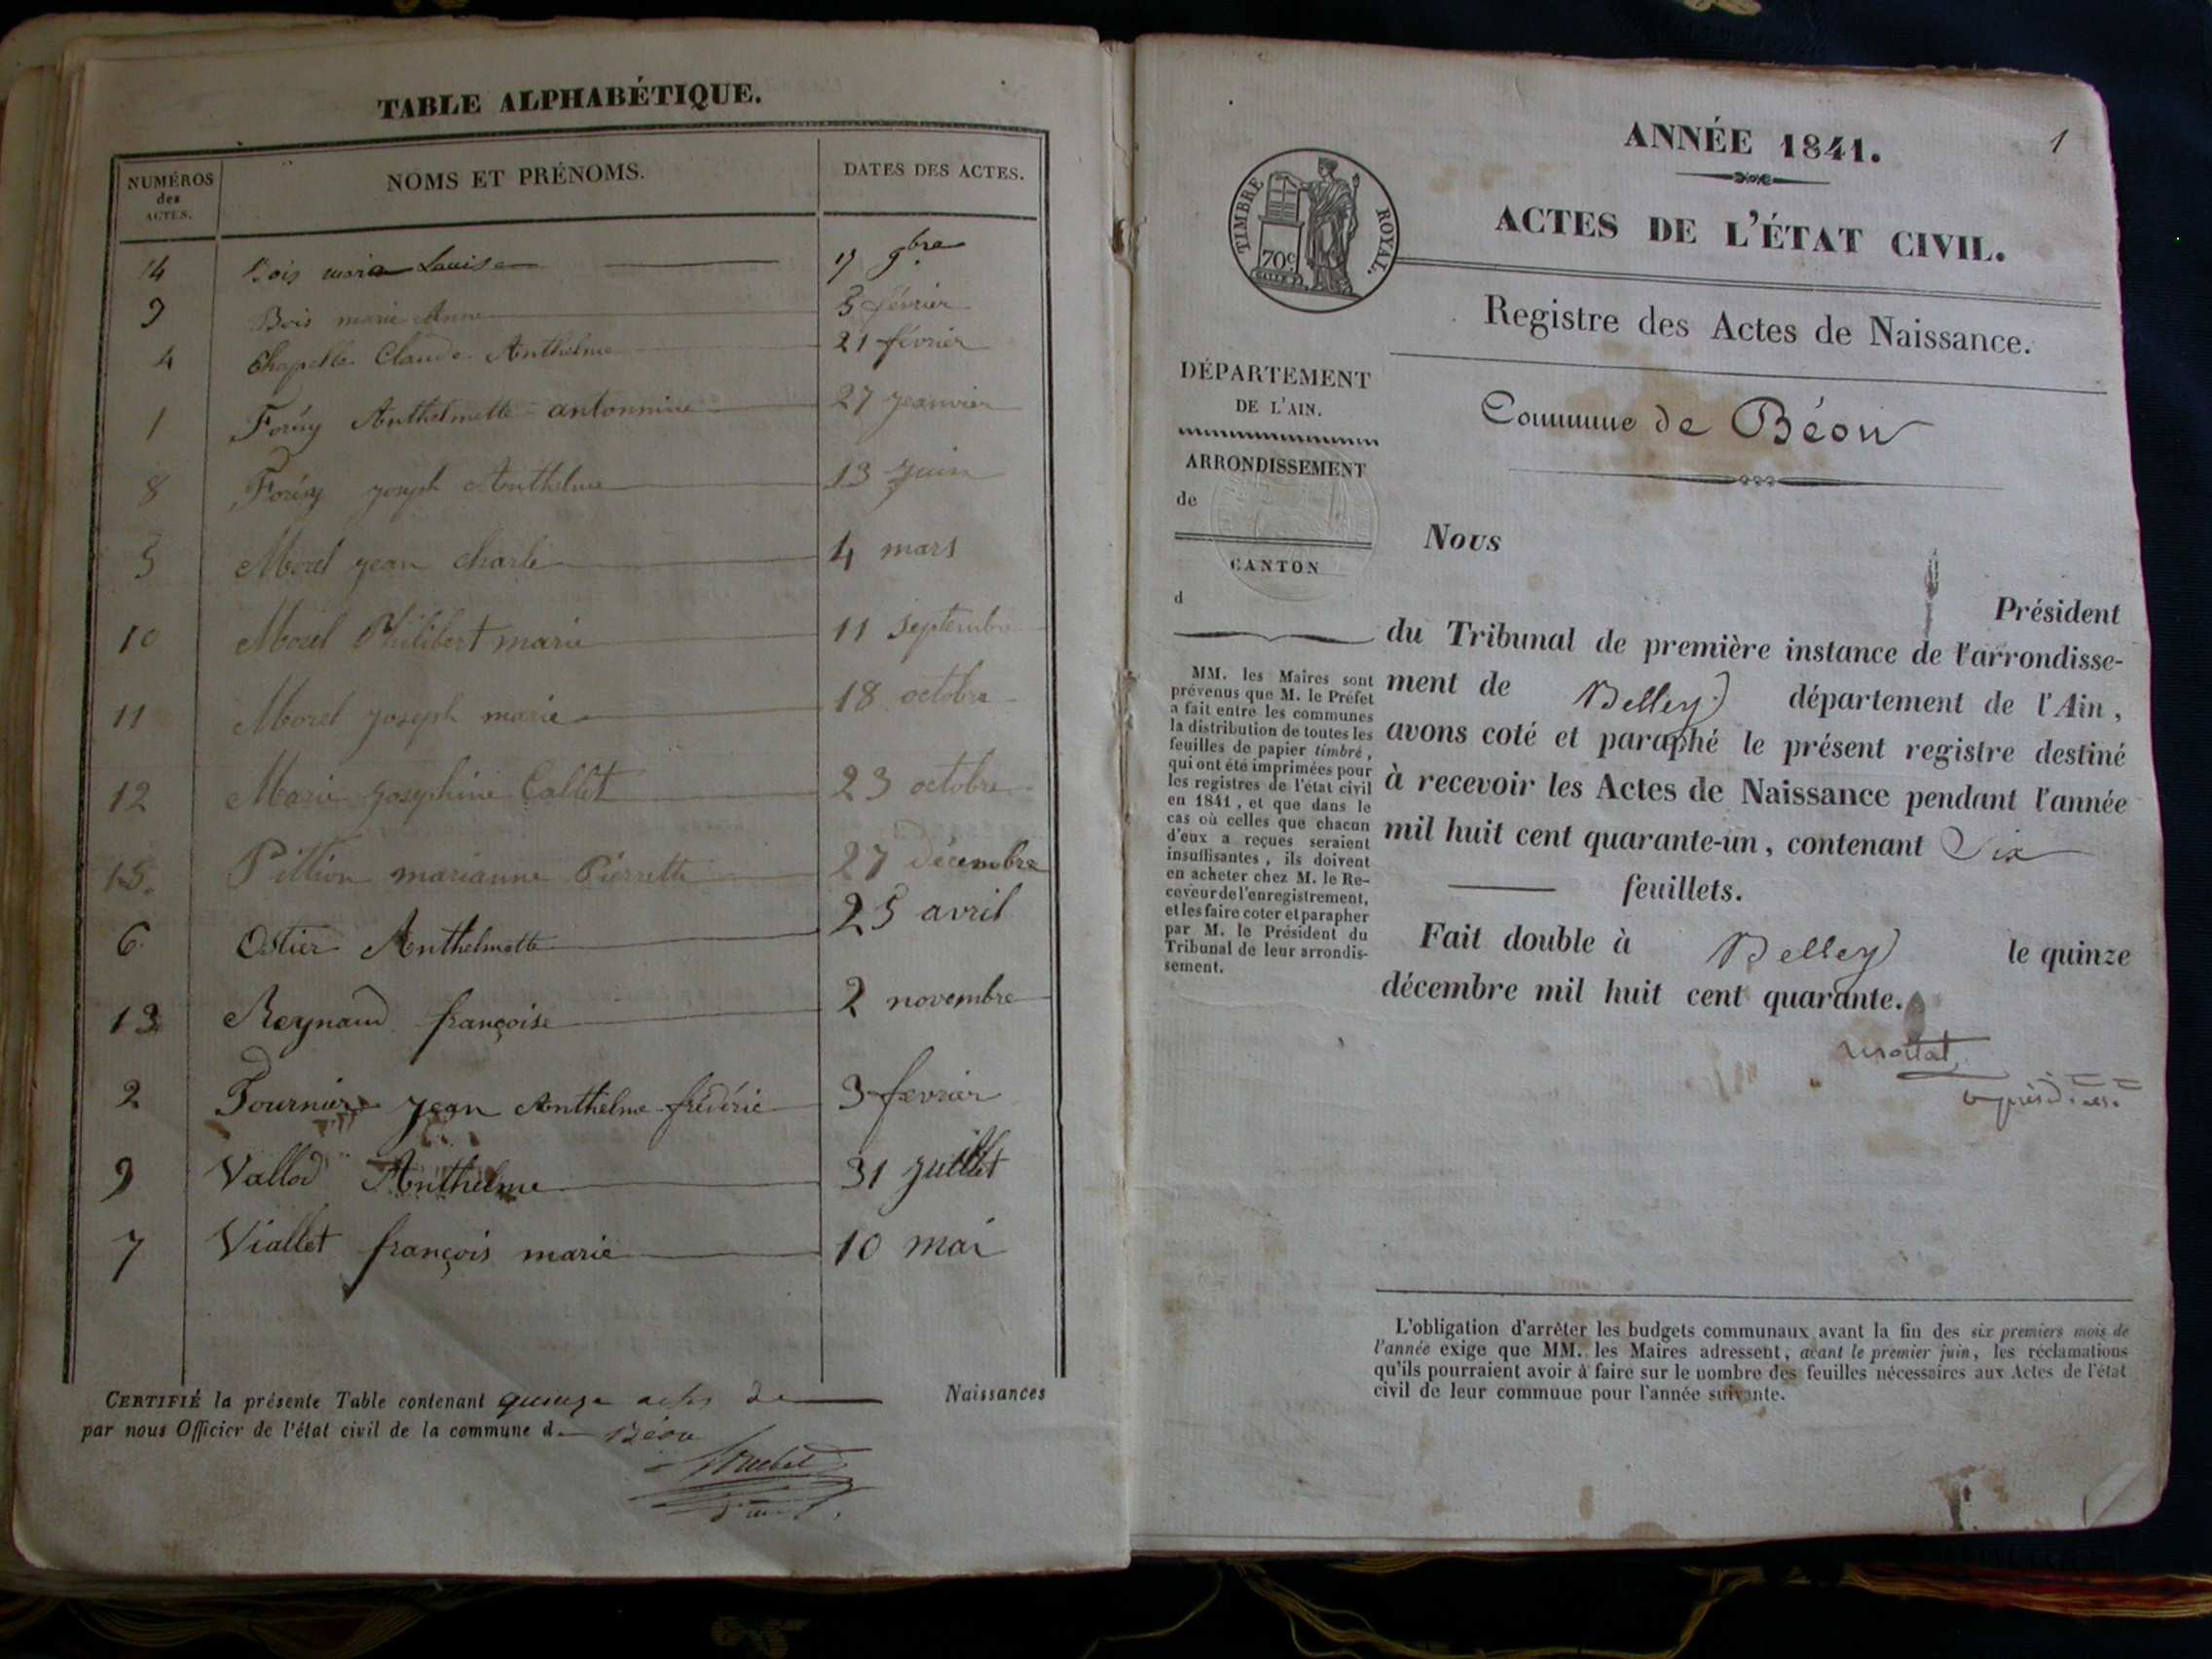 TABLE ALPHABÉTIQUE.
NUMÉROS des ACTES. NOMS ET PRÉNOMS. DATES DES ACTES.
14 Bois maria Louise 17 9bre
9 Bois marie Anne 5 février
4 Chapelle Claude Anthelme 21 février
1 Foréry Anthelmette antonnine 27 jeanvier
8 Foréry joseph Anthelme 13 juin
5 Morel jean charle 4 mars
10 Morel Philibert marie 11 septembre
11 Morel joseph marie 18 octobre
12 Marie josephine Callet 23 octobre
15. Pittion marianne Pierrette 27 décembre
6 Ostier Anthelmette 25 avril
13 Reynaud françoise 2 novembre
2 Fournier jean Anthelme frédéric 3 fevrier
9 Vallod Anthelme 31 juillet
7 Viallet françois marie 10 mai
CERTIFIÉ la présente Table contenant quinze actes de Naissances
par nous Officier de l'état civil de la commune d Béon
1
ANNÉE 1841.
TIMBRE ROYAL.
70c
ACTES DE L'ÉTAT CIVIL.
Registre des Actes de Naissance.
DÉPARTEMENT
DE L'AIN.
ARRONDISSEMENT
de
CANTON
d
MM. les Maires sont
prévenus que M. le Préfet
a fait entre les communes
la distribution de toutes les
feuilles de papier timbré,
qui ont été imprimées pour
les registres de l'état civil
en 1841, et que dans le
cas où celles que chacun
d'eux a reçues seraient
insuffisantes, ils doivent
en acheter chez M. le Re-
ceveur de l'enregistrement,
et les faire coter et parapher
par M. le Président du
Tribunal de leur arrondis-
sement.
Commune de Béon
Nous
Président
du Tribunal de première instance de l'arrondisse-
ment de Belley département de l'Ain,
avons coté et paraphé le présent registre destiné
à recevoir les Actes de Naissance pendant l'année
mil huit cent quarante-un, contenant Six
feuillets.
Fait double à Belley le quinze
décembre mil huit cent quarante.
L'obligation d'arrêter les budgets communaux avant la fin des six premiers mois de
l'année exige que MM. les Maires adressent, avant le premier juin, les réclamations
qu'ils pourraient avoir à faire sur le nombre des feuilles nécessaires aux Actes de l'état
civil de leur commune pour l'année suivante.